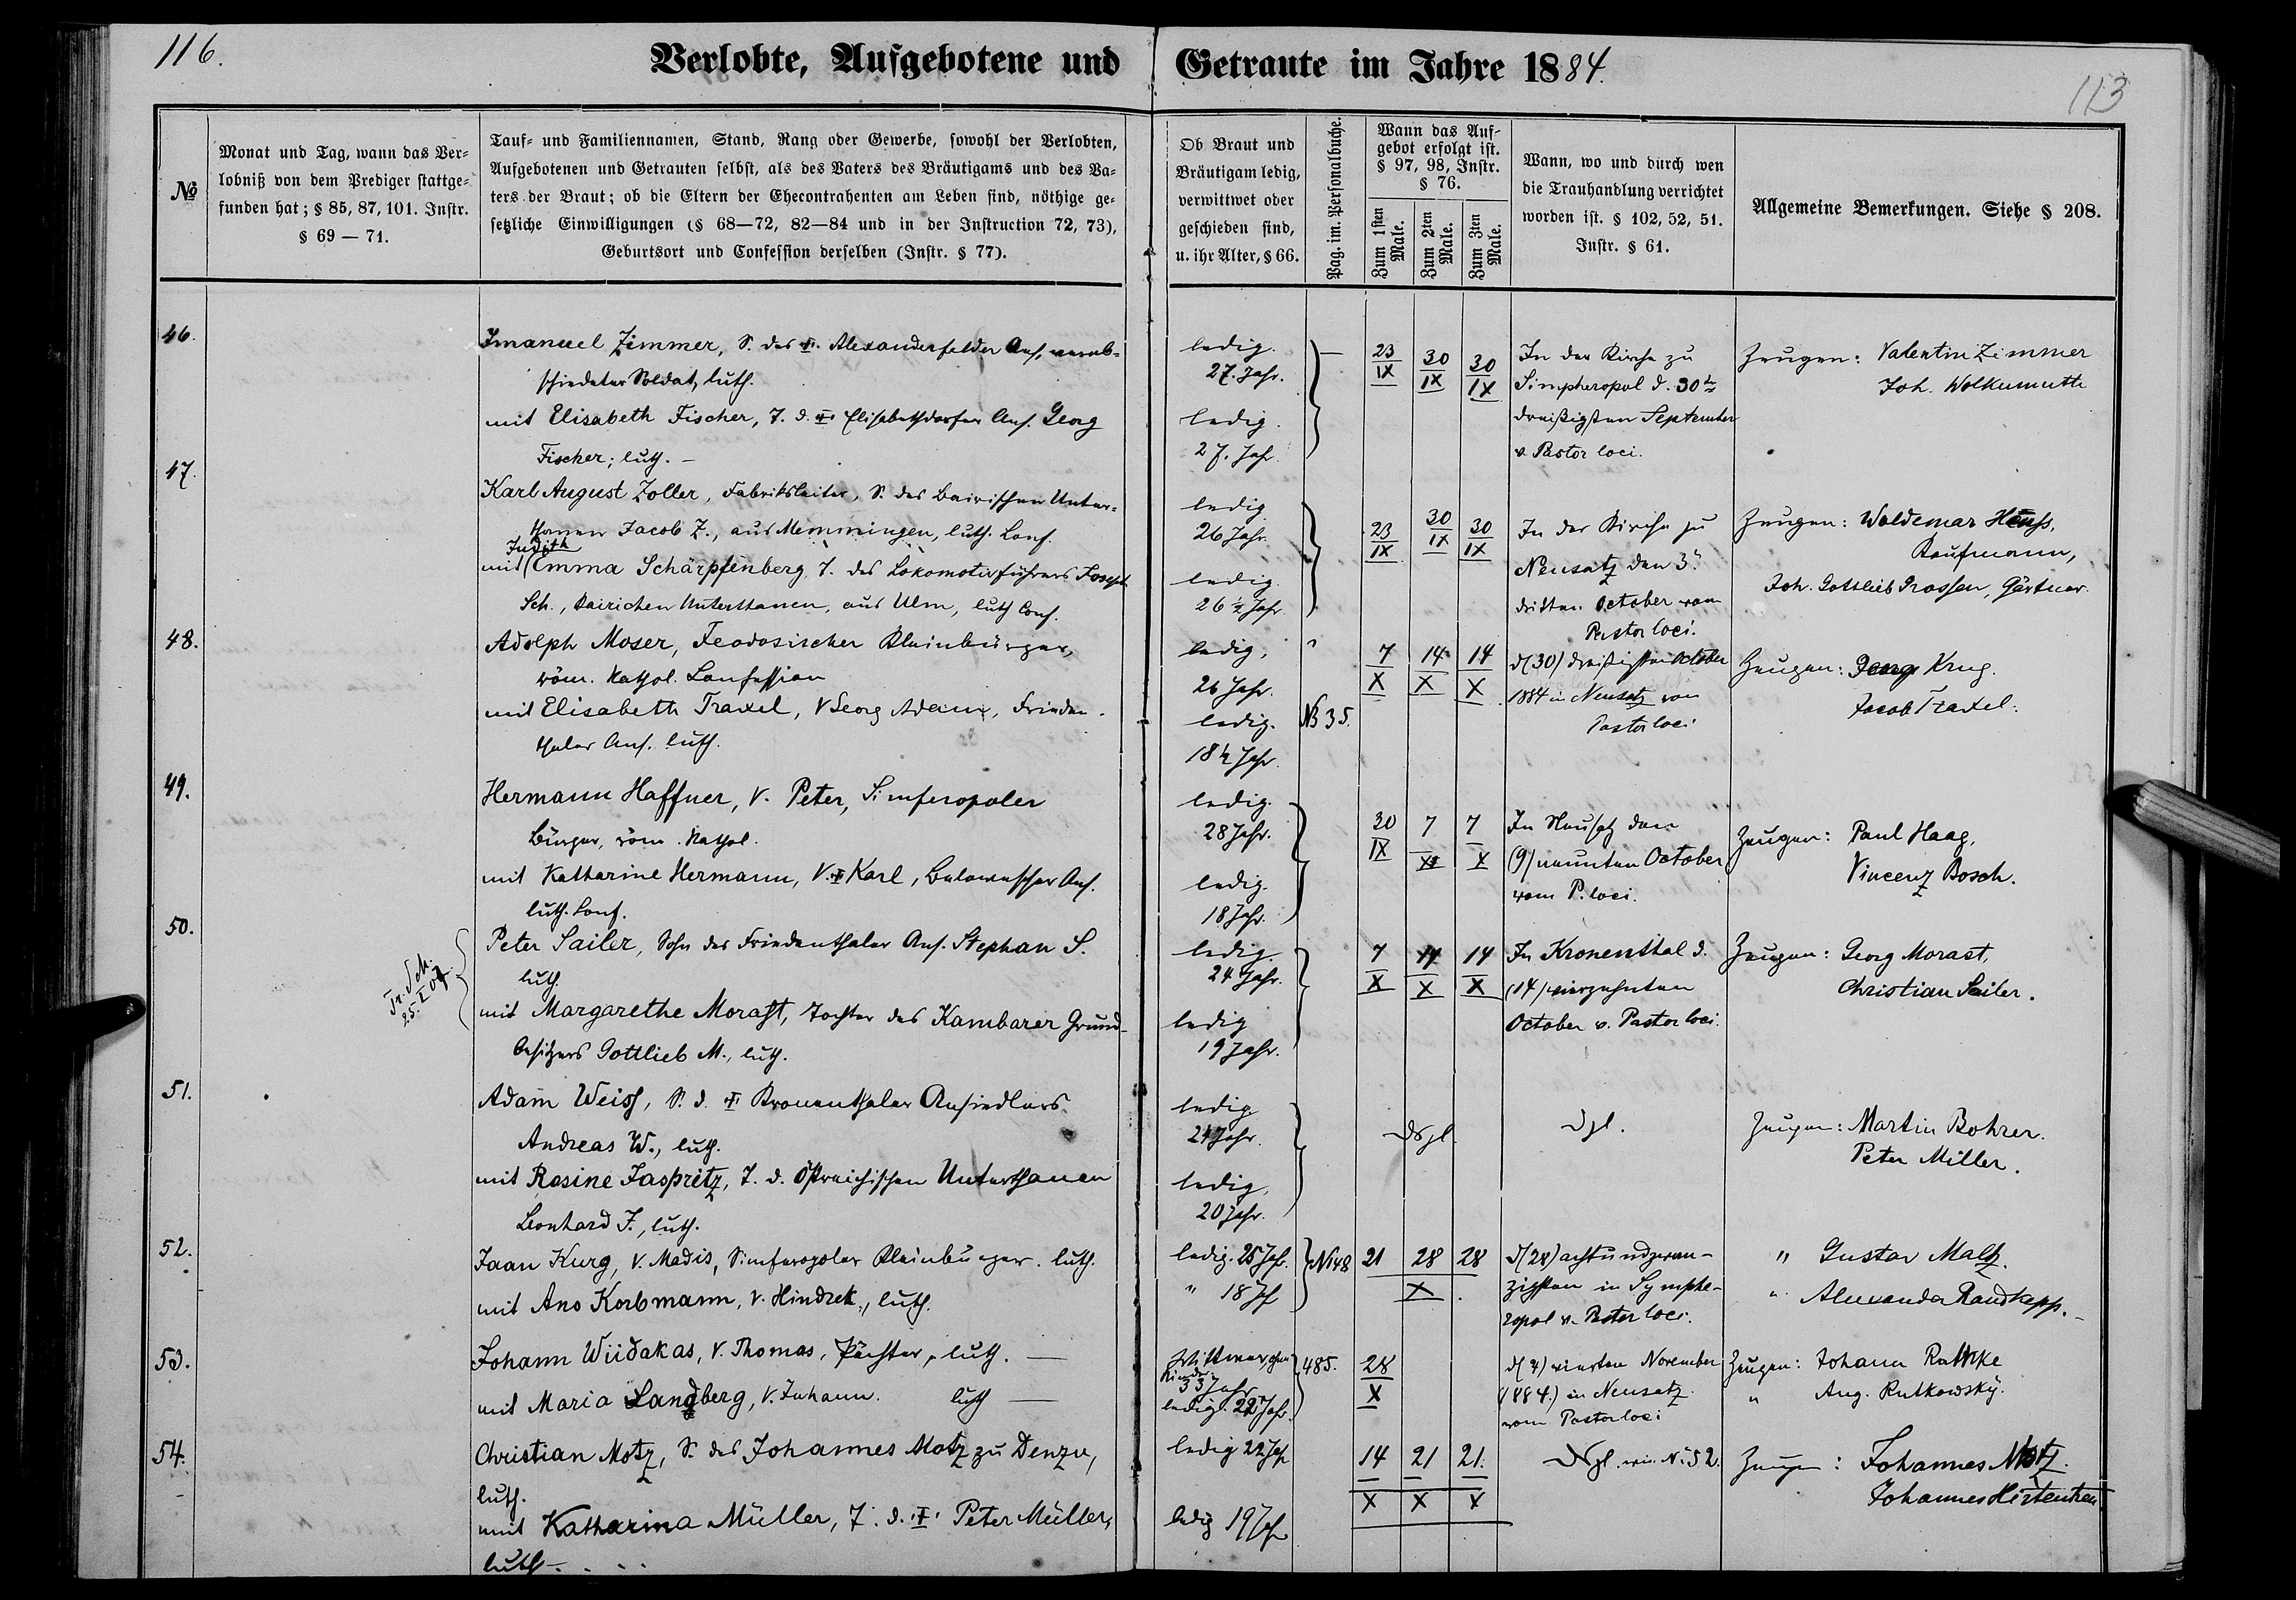 116.
Verlobte, Aufgebotene und Getraute im Jahre 1884.
113
№
Monat und Tag, wann das Ver-
lobniß von dem Prediger stattge-
funden hat; § 85, 87, 101. Instr.
§ 69 — 71.
Tauf- und Familiennamen, Stand, Rang oder Gewerbe, sowohl der Verlobten,
Aufgebotenen und Getrauten selbst, als des Vaters des Bräutigams und des Va-
ters der Braut; ob die Eltern der Ehecontrahenten am Leben sind, nöthige ge-
setzliche Einwilligungen (§ 68—72, 82—84 und in der Instruction 72, 73),
Geburtsort und Confession derselben (Instr. § 77).
Ob Braut und
Bräutigam ledig,
verwittwet oder
geschieden sind,
u. ihr Alter, § 66.
Pag. im. Personalbuche.
Wann das Auf-
gebot erfolgt ist.
§ 97, 98, Instr.
§ 76.
Zum 1sten Male.
Zum 2ten Male.
Zum 3ten Male.
Wann, wo und durch wen
die Trauhandlung verrichtet
worden ist. § 102, 52, 51.
Instr. § 61.
Allgemeine Bemerkungen. Siehe § 208.
46.
Imanuel Zimmer, S. des ☩ Alexanderfelder Ans., verab-
schiedeter Soldat, luth.
mit Elisabeth Fischer, T. d. ☩ Elisabethdorfer Ans. Georg
Fischer; luth. —
ledig.
27. Jahr.
ledig.
27. Jahr
23 IX
30 IX
30 IX
In der Kirche zu
Simpheropol d. 30
dreißigsten September
v. Pastor loci.
Zeugen: Valentin Zimmer
Joh. Wolkumuth
47.
Karl August Zoller, Fabriksleiter, S. des bairischen Unter-
thanen Jacob Z., aus Memmingen, luth. Conf.
Judith
mit Emma Schärpfenberg, T. des Lokomotivführers Joseph
Sch., bairichen Unterthanen, aus Ulm, luth Conf.
ledig
26 Jahr.
ledig.
26 ½ Jahr
23 IX
30 IX
30 IX
In der Kirche zu
Neusatz den 3.
dritten October vom
Pastor loci.
Zeugen: Woldemar Heuss,
Kaufmann,
Joh. Gottlieb Grossen, Gärtner.
48.
Adolph Moser, Feodosischer Kleinbürger,
röm. kathol. Confession
mit Elisabeth Traxel, V Georg Adam, Frieden-
thaler Ans. luth.
ledig,
26 Jahr.
ledig.
18½ Jahr.
№ 35.
7 X
14 X
14 X
d (30) dreißigsten October
1884 in Neusatz von
Pastor loci
Zeugen: Georg Krug.
Jacob Traxel.
49.
Hermann Haffner, V. Peter, Simferopoler
Bürger, röm. kathol.
mit Katharine Hermann, V. ☩ Karl, Ans.
luth. Conf.
ledig.
28 Jahr.
ledig.
18 Jahr.
30 IX
7 X
7 X
In Neusatz den
(9) neunten October
vom P. loci.
Zeugen: Paul Haag,
Vincenz Bosch.
50.
Tr. Sch.
25. I 07
Peter Sailer, Sohn des Friedenthaler Ans. Stephan S.
luth.
mit Margarethe Morast, Tochter des Kambarer Grund-
besitzers Gottlieb M., luth.
ledig.
24 Jahr.
ledig
19 Jahr.
7 X
14 X
14 X
In Kronenthal d.
(14) vierzehnten
October v. Pastor loci.
Zeugen: Georg Morast,
Christian Sailer.
51.
Adam Weiss, S. d. ☩ Kronenthaler Ansiedlers
Andreas W., luth.
mit Rosine Jaspritz, T. d. östreichischen Unterthanen
Leonhard J., luth.
ledig
24 Jahr.
ledig,
20 Jahr.
dsgl.
dgl.
Zeugen: Martin Bohrer.
Peter Miller.
52.
Jaan Kurg, V. Madis, Simferopoler Kleinbürger. luth.
mit Ano Korbmann, V. Hindrek, luth.
ledig. 25 Jahr.
" 18 Jahr
№ 148
21 28 28
X
d (28) achtundzwan-
zigsten in Symphe-
ropol v. Pastor loci.
" Gustav Maltz.
" Alexander Raudkepp.
53.
Johann Wiidakas, V. Thomas, Pächter, luth. —
mit Maria Landberg, V. Johann. luth —
Wittwer, ohne
Kinder
33 Jahr
ledig. 22 Jahr.
485.
28 X
d (4) vierten November
(1884.) in Neusatz
vom Pastor loci
Zeugen: Johann Rattike
" Aug. Rutkowsky.
54.
Christian Motz, S. des Johannes Motz zu Denzu,
luth.
mit Katharina Müller, T. d. ☩ Peter Müller,
luth.
ledig 22 Jahr
ledig 19 Jahr
14 X
21 X
21. X
Dsgl. wie № 52.
Zeugen: Johannes Motz.
Johannes Hertentren